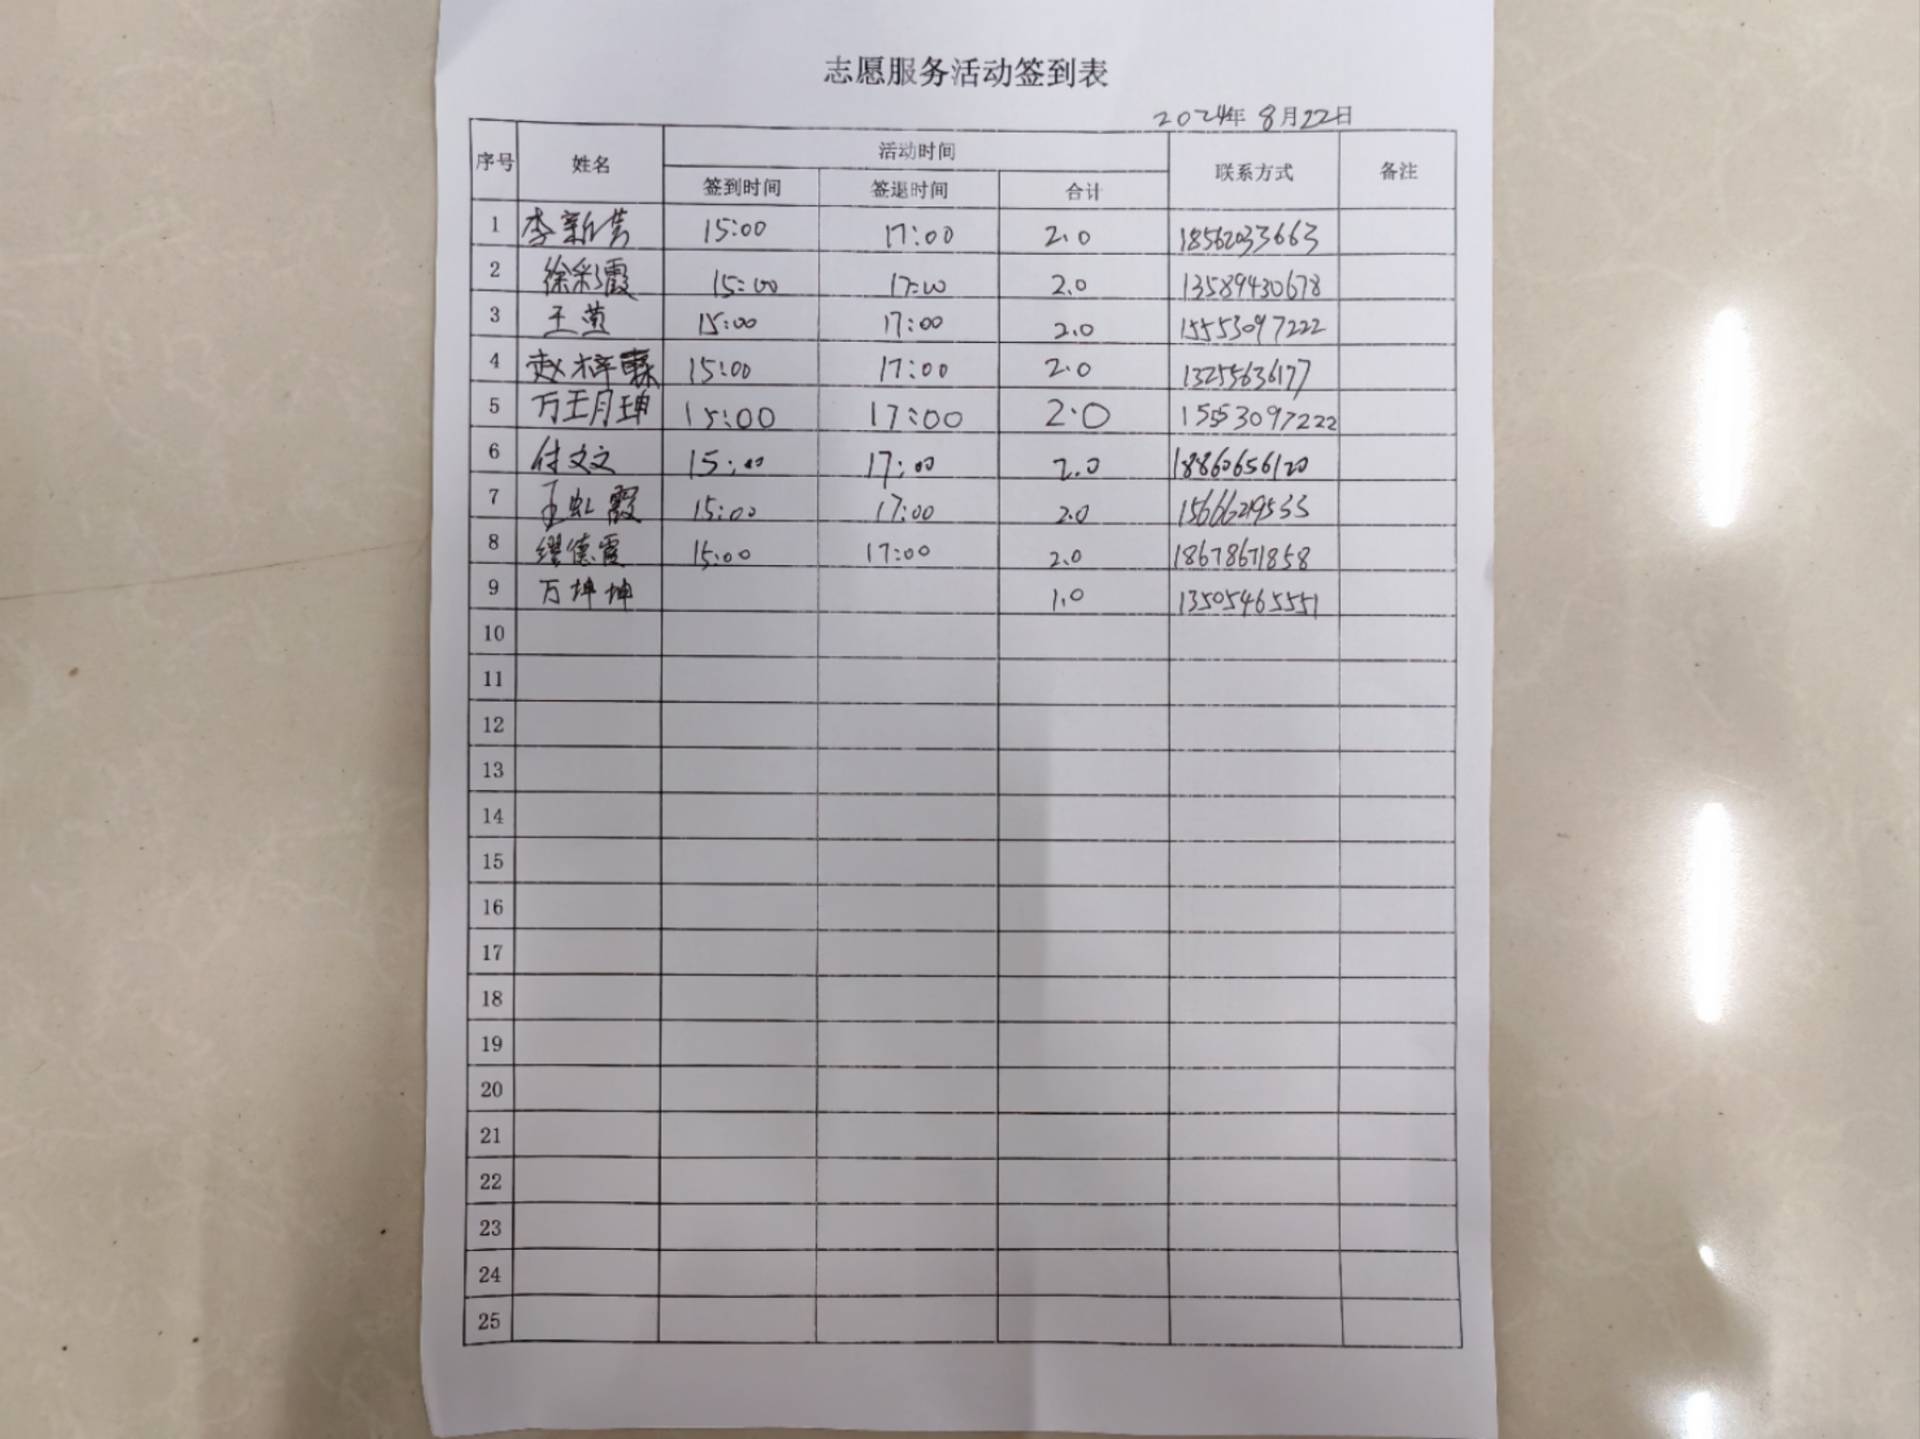 志愿服务活动签到表
2024年 8月22日
序号 姓名 活动时间 联系方式 备注
签到时间 签退时间 合计
1 李新芸 15:00 17:00 2.0 18562033663
2 徐彩霞 15:00 17:00 2.0 13589430678
3 王萸 15:00 17:00 2.0 15553097222
4 赵梓霖 15:00 17:00 2.0 13255636177
5 万玥坤 15:00 17:00 2.0 15553097222
6 付文文 15:00 17:00 2.0 18860656120
7 王虹霞 15:00 17:00 2.0
8 缪德霞 15:00 17:00 2.0 18678671858
9 万坤坤 1.0 13505465551
10
11
12
13
14
15
16
17
18
19
20
21
22
23
24
25